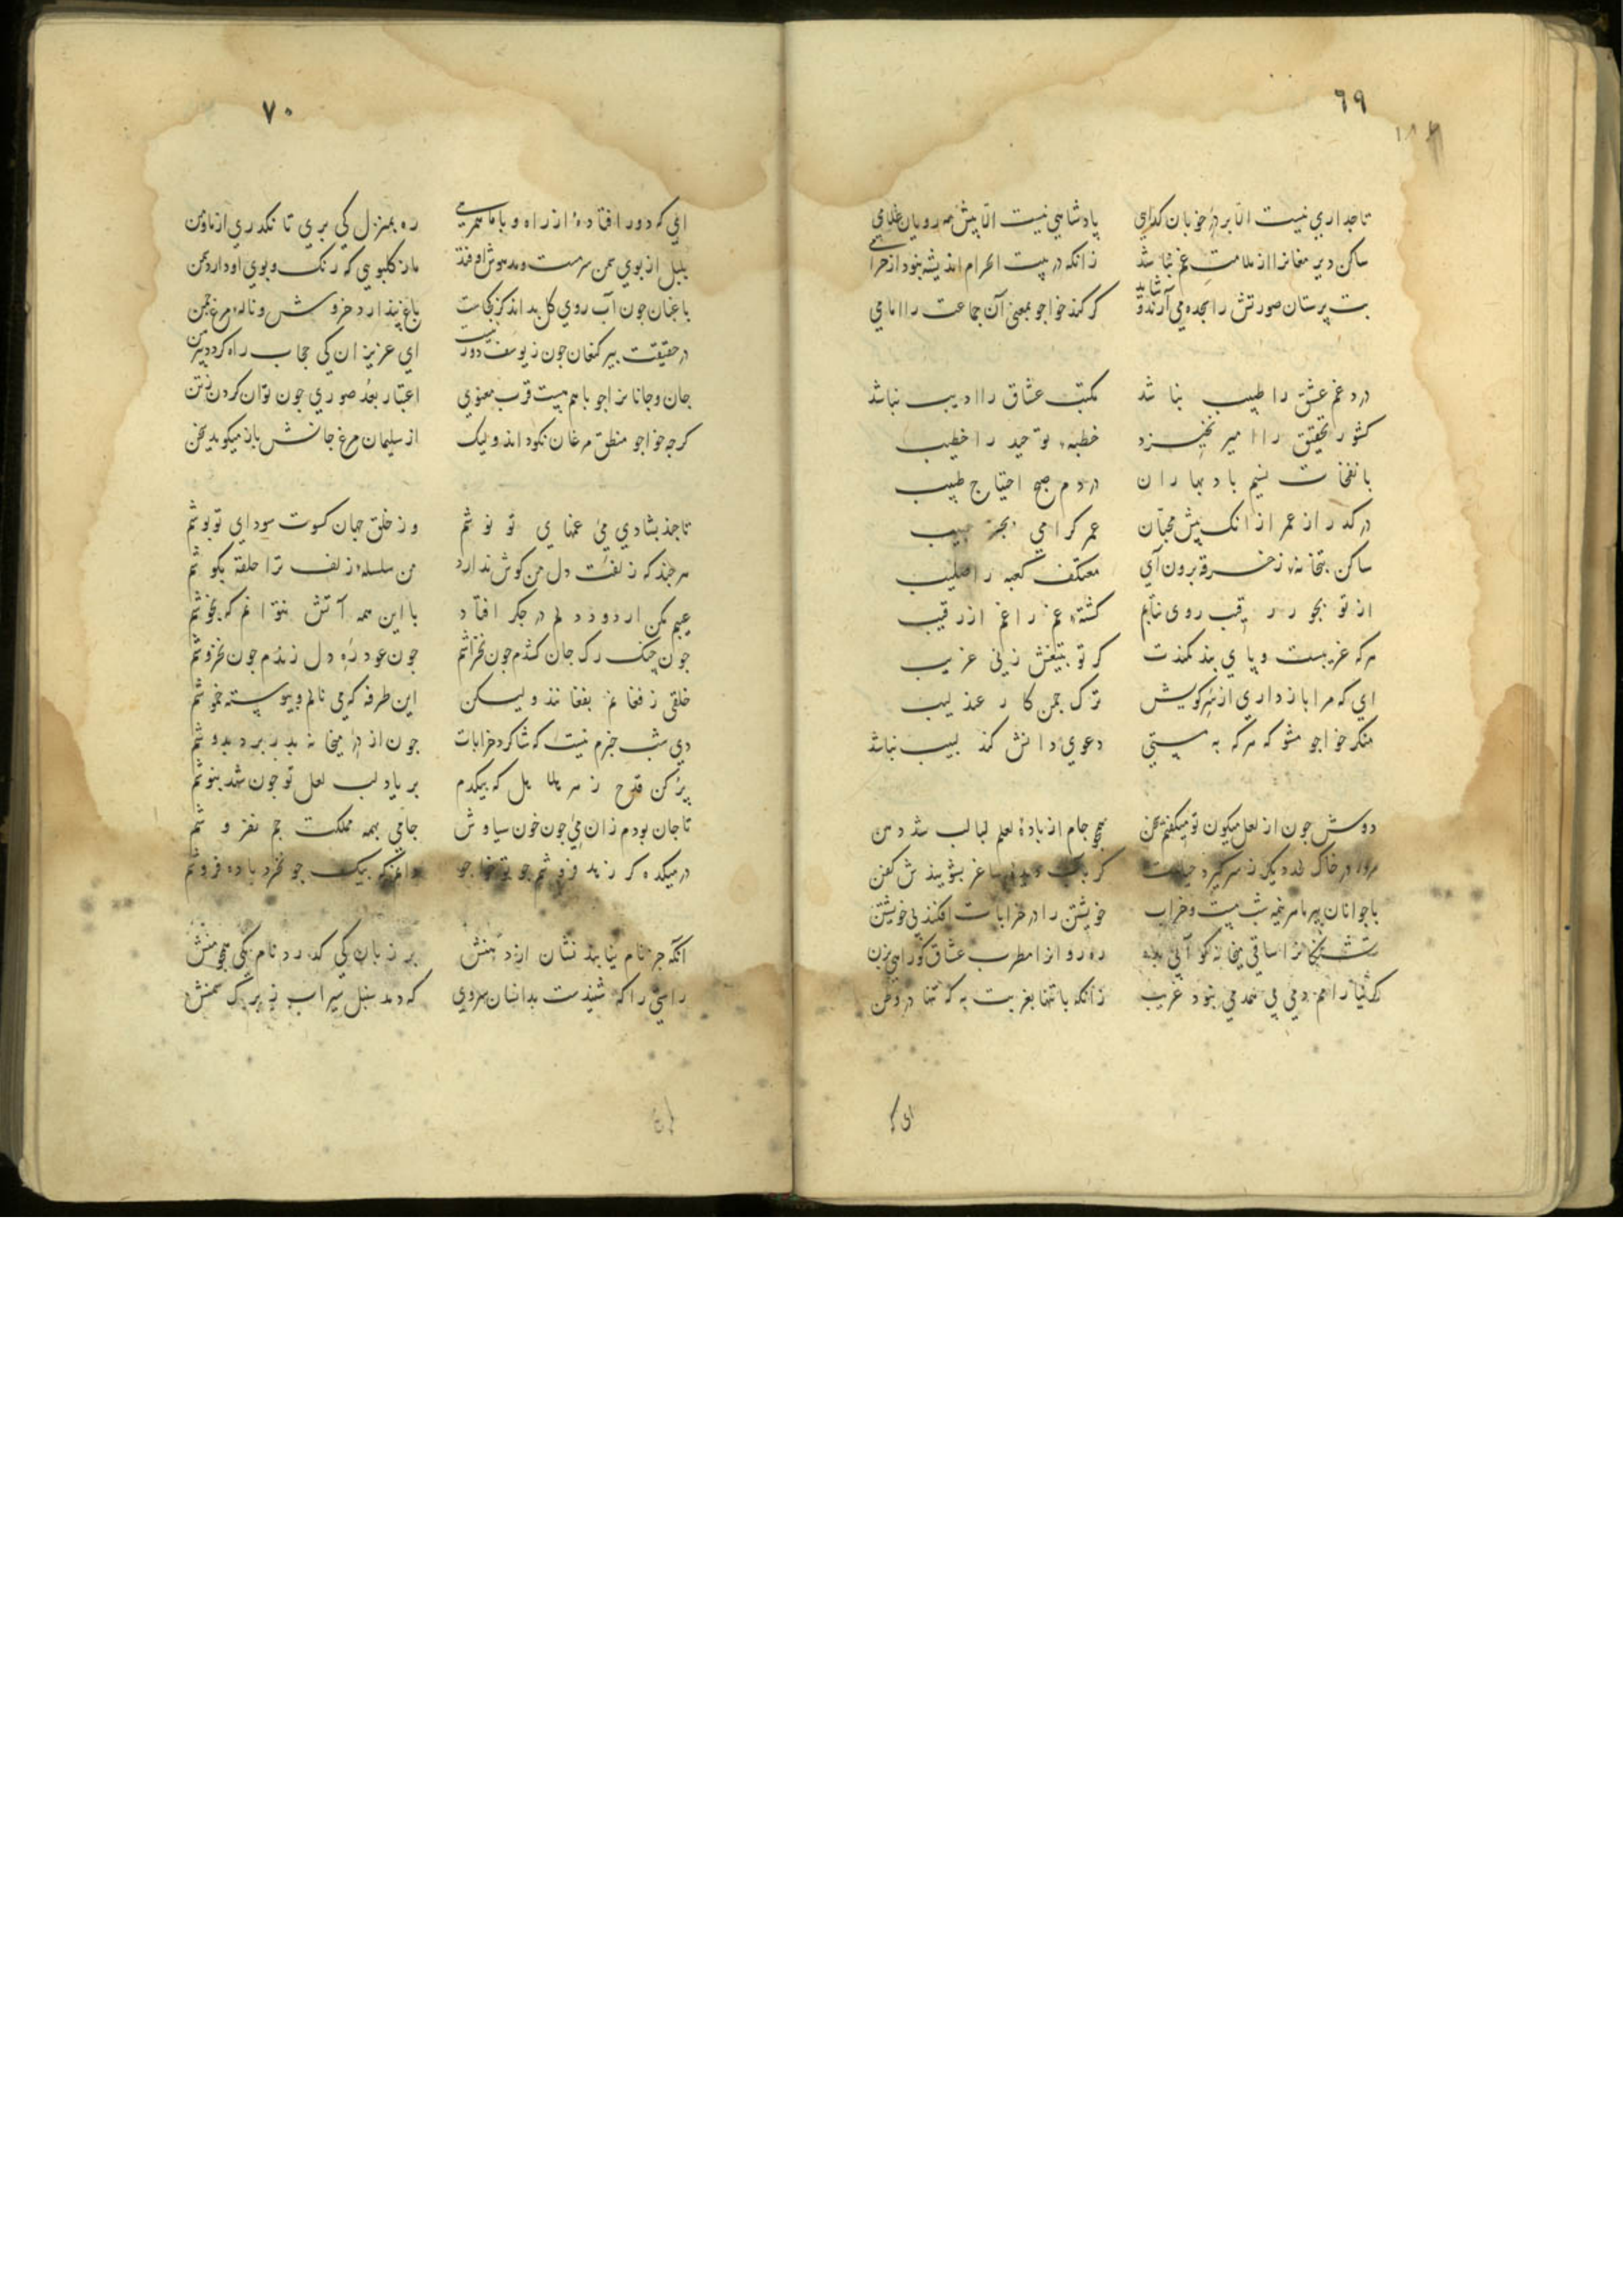 ٦٩
تاجداری نیست الا بر در خوبان کدایی پادشاهی نیست الا پیش مه رویان غلامی
ساکن دیر مغانرا از ملامت غم نباشد زانکه در بیت الحرام اندیشه نبود از حرامی
بت پرستان صورتش را سجده می آرند و شاید کر کند خواجو بمعنی آن جماعت را امامی
درد غم عشق را طبیب نباشد مکتب عشاق را ادیب نباشد
کشور تحقیق را امیر نخیزد خطبه توحید را خطیب
با نفخات نسیم باد بهاران در دم صبح احتیاج طیب
در کذر از عمر از انک پیش محبان عمر کرامی بجز حبیب
ساکن بتخانه ز خرقه برون آی معتکف کعبه را صلیب
از تو بجور رقیب روی نتابم کشته غم را غم از رقیب
هر که غریبست و پای بند کمندت کر تو بتیغش زنی غریب
ای که مرا باز داری از سر کویش ترک چمن کار عندلیب
منکر خواجو مشو که هر که به مستی دعوی دانش کند لبیب نباشد
دوش چون از لعل میکون تو میکفتم سخن همچو جام از باده لعلم لبالب شد دهن
مرده در خاک لحد دیکر ز سر کیرد حیات کر بآب ساغر بشویندش کفن
با جوانان پیر ما هر نیمه شب مست و خراب خویشتن را در خرابات افکند بی خویشتن
تشنکانرا ساقی میخانه کو آبی بده ره روانرا مطرب عشاق کو راهی بزن
کر ثیا را همدمی بی همدمی نبود غریب زانکه با تنها بغربت به که تنها در وطن
ای که
٧٠
ای که دور افتاده از راه و با ما همرهی ره بمنزل کی بری تا نکذری از ما و من
بلبل از بوی سمن سرمست و مدهوش اوفتد ما ز کلبویی که رنک و بوی او دارد سمن
باغبان چون آب روی کل بداند کز کجاست باغ نپندارد خروش و ناله مرغ چمن
در حقیقت پیر کنعان چون ز یوسف دور نیست ای عزیزان کی حجاب راه کردد پیرهن
جان و جانانرا چو با هم هست قرب معنوی اعتبار بعد صوری چون توان کردن ز تن
کرچه خواجو منطق مرغان نکو داند ولیک از سلیمان مرغ جانش باز میکوید سخن
تا چند بشادی می غمهای تو نوشم وز خلق جهان کسوت سودای تو پوشم
هر چند که زلفت دل من کوش ندارد من سلسله زلف ترا حلقه بکوشم
عیبم مکن ار دود دلم در جکر افتاد با این همه آتش نتوانم که بجوشم
چون چنک رک جان کشدم چون نخراشم چون عود ره دل زندم چون نخروشم
خلقی ز فغانم بفغانند ولیکن این طرفه که می نالم و پیوسته خموشم
دی شب خبرم نیست که شاکرد خرابات چون از در میخانه بدر برد بدوشم
پر کن قدح ز هر هلاهل که بیکدم بر یاد لب لعل تو چون شهد بنوشم
تا جان بودم زان می چون خون سیاوش جامی بهمه مملکت جم نفروشم
در میکده کر زهد فروشم چو تو خواجو دانم که بیک جو نخرد باده فروشم
آنکه جز نام نیابند نشان از دهنش بر زبان کی کذرد نام یکی همچو منش
راستی را که شنیدست بدانسان سروی که دمد سنبل سیراب ز برک سمنش